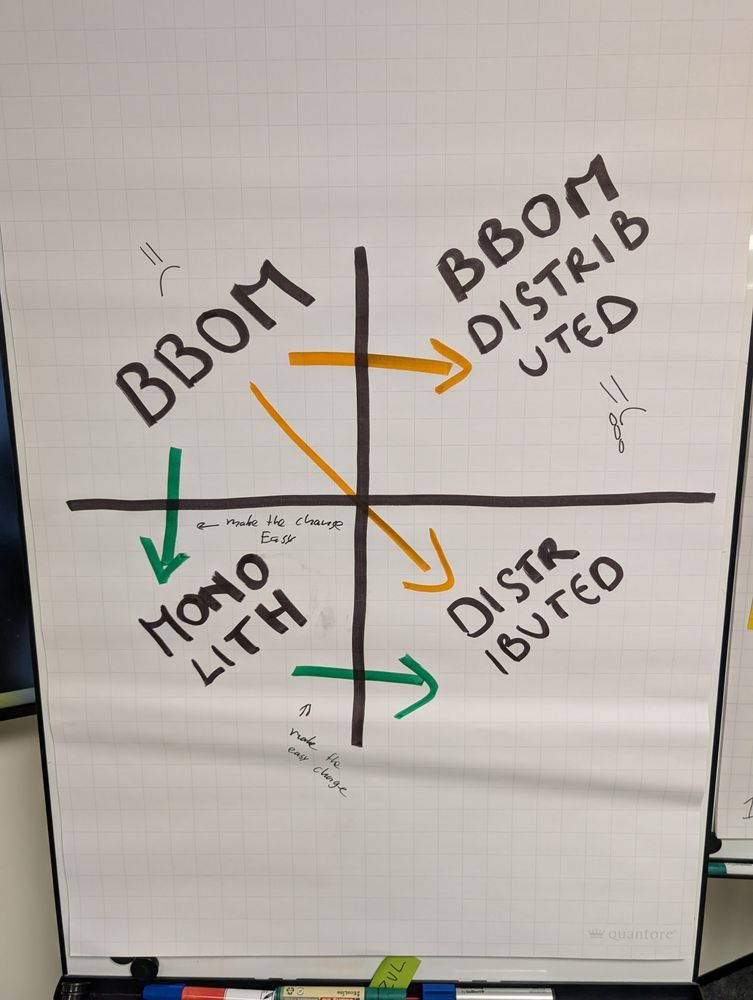 BBOM
BBOM
DISTRIB
UTED
← make the change
Easy
MONO
LITH
DISTR
IBUTED
make the
easy change
quantore